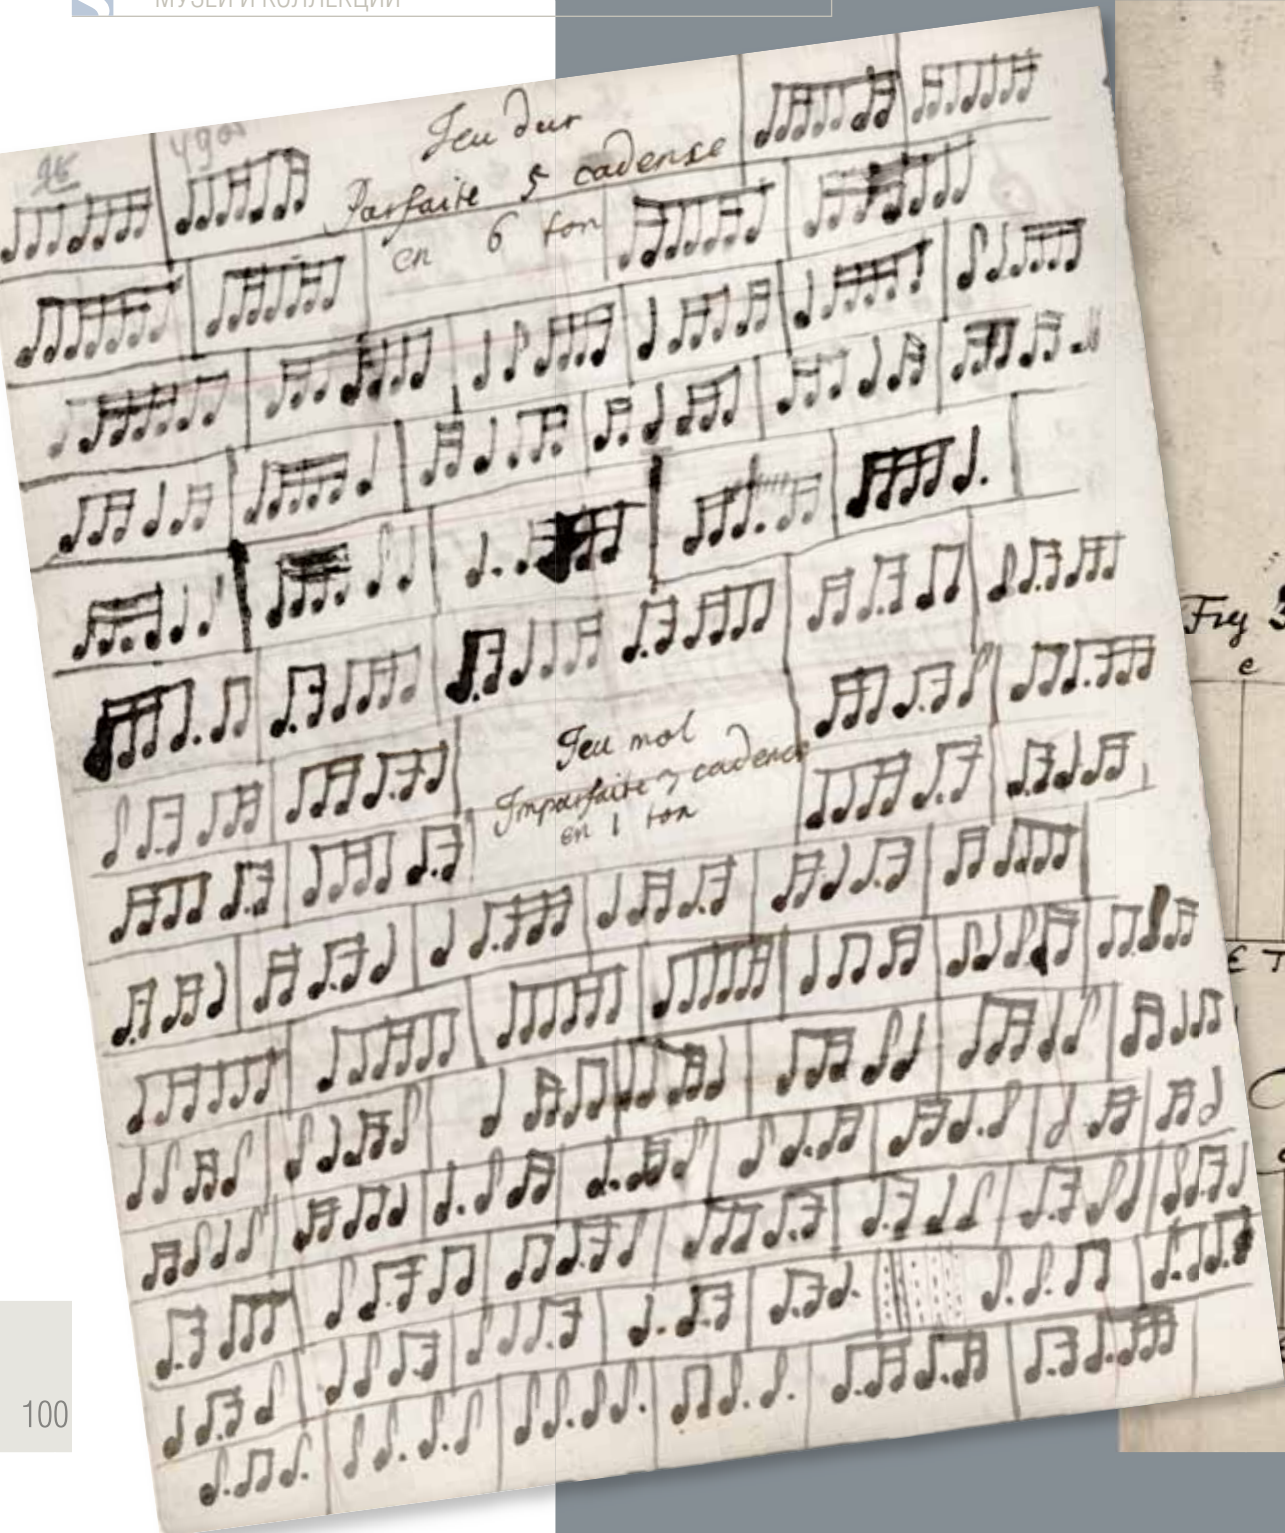 МУЗЕИ И КОЛЛЕКЦИИ
96
490
Jeu dur
Parfaite 5 cadense
en 6 ton
Jeu mol
Imparfaite 7 cadence
en 1 ton
e
100